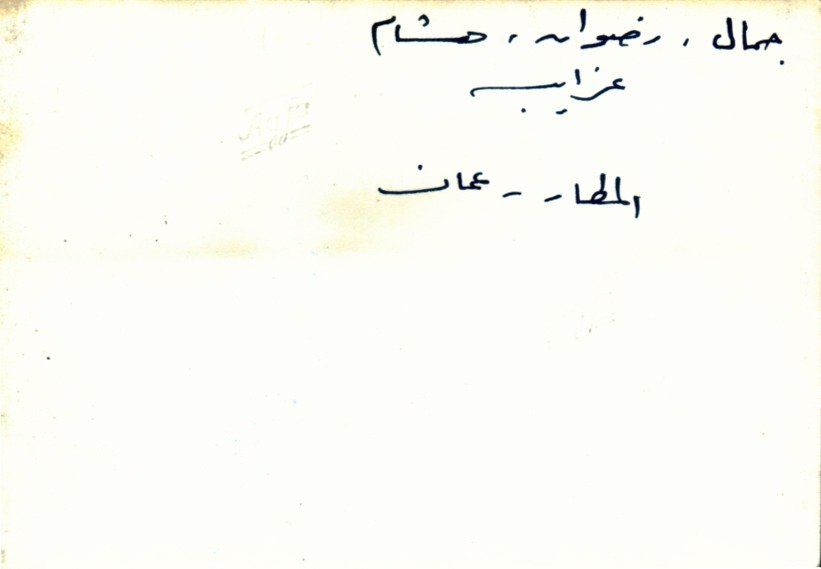 جمال ، رضوان ، هشام
عزايب
المطار - عمان